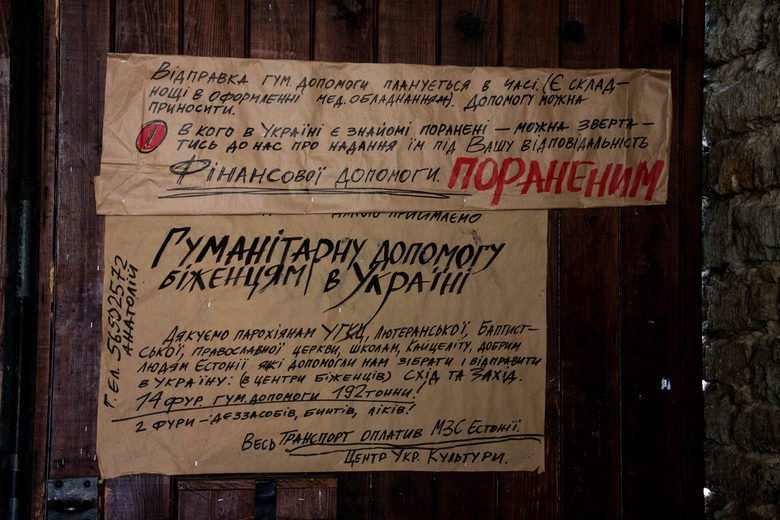 Відправка гум. допомоги планується в часі. (Є склад-
нощі в оформленні мед. обладнанням). Допомогу можна
приносити.
! В кого в Україні є знайомі поранені – можна зверта-
тись до нас про надання їм під Вашу відповідальність
Фінансової допомоги. ПОРАНЕНИМ
приймаємо
Гуманітарну допомогу
біженцям в Україні
Дякуємо парохіянам УГКЦ, Лютеранської, Баптист-
ської, православної церкви, школам, Кайцеліту, добрим
людям Естонії які допомогли нам зібрати і відправити
в Україну: (в центри біженців) Схід та Захід.
14 фур. гум. допомоги 192 тонни!
2 фури – деззасобів, бинтів, ліків!
Весь транспорт оплатив МЗС Естонії.
Центр Укр. Культури.
Тел. 56502572
Анатолій